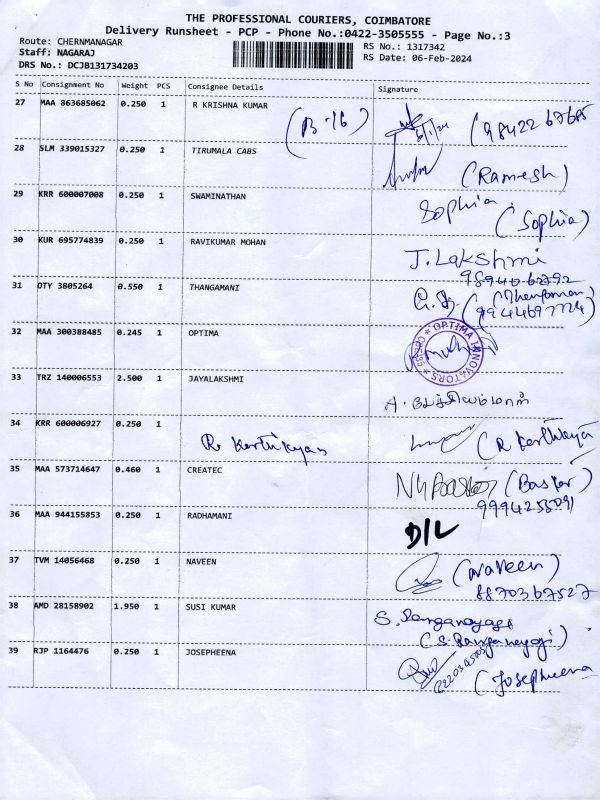 THE PROFESSIONAL COURIERS, COIMBATORE
Delivery Runsheet - PCP - Phone No.:0422-3505555 - Page No.:3
Route: CHERNMANAGAR
Staff: NAGARAJ
DRS No.: DCJB131734203
RS No.: 1317342
RS Date: 06-Feb-2024
S No Consignment No Weight PCS Consignee Details Signature
27 MAA 863685062 0.250 1 R KRISHNA KUMAR (B-16) (98422 67685
28 SLM 339015327 0.250 1 TIRUMALA CABS (Ramesh)
29 KRR 600007008 0.250 1 SWAMINATHAN Sophia (Sophia)
30 KUR 695774839 0.250 1 RAVIKUMAR MOHAN J. Lakshmi
31 OTY 3805264 0.550 1 THANGAMANI
(9944697724)
32 MAA 300388485 0.245 1 OPTIMA OPTIMA INNOVATORS
33 TRZ 140006553 2.500 1 JAYALAKSHMI
34 KRR 600006927 0.250 1
35 MAA 573714647 0.460 1 CREATEC (Baskar)
36 MAA 944155853 0.250 1 RADHAMANI D/L
37 TVM 14056468 0.250 1 NAVEEN (Naveen)
8870367527
38 AMD 28158902 1.950 1 SUSI KUMAR
39 RJP 1164476 0.250 1 JOSEPHEENA (Josepheena